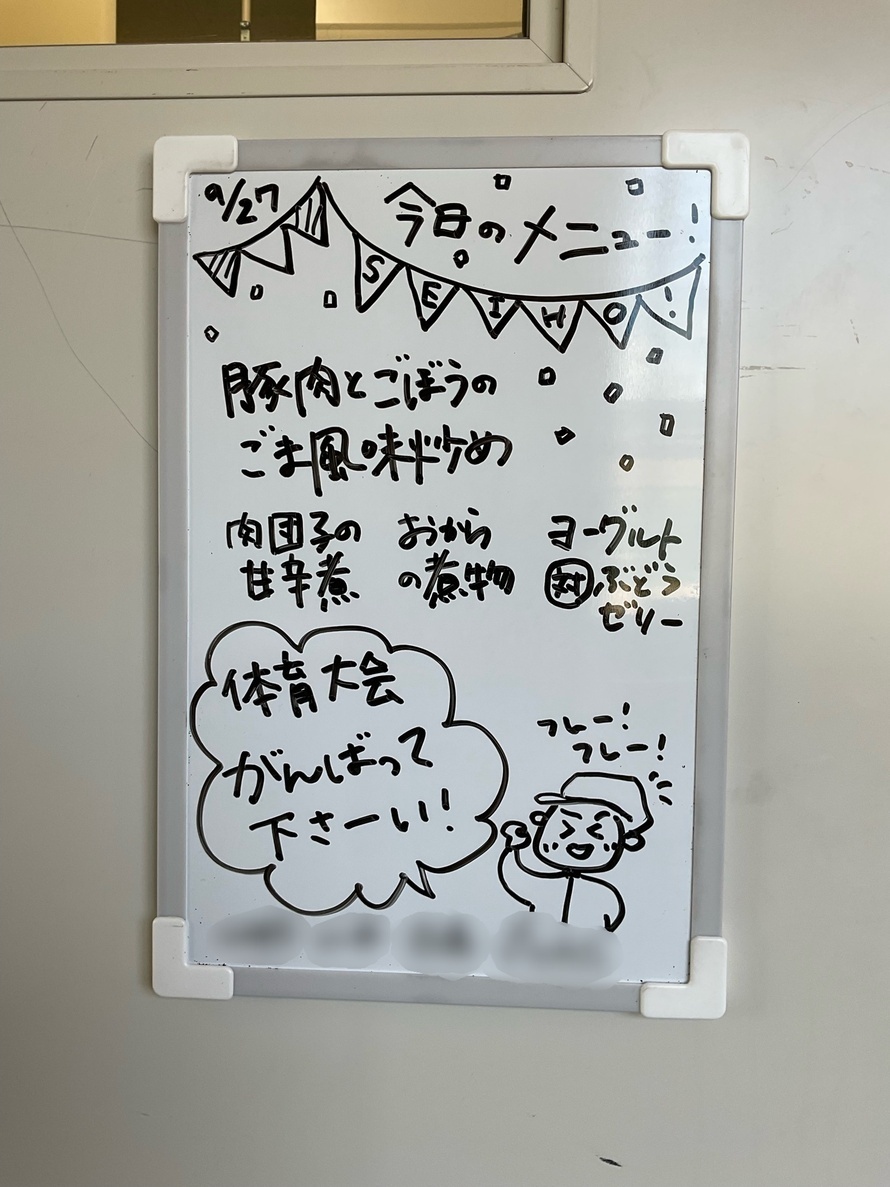 9/27
今日のメニュー!
SEIHO!
豚肉とごぼうの
ごま風味炒め
肉団子の
甘辛煮
おから
の煮物
ヨーグルト
対ぶどう
ゼリー
体育大会
がんばって
下さーい!
フレー!
フレー!